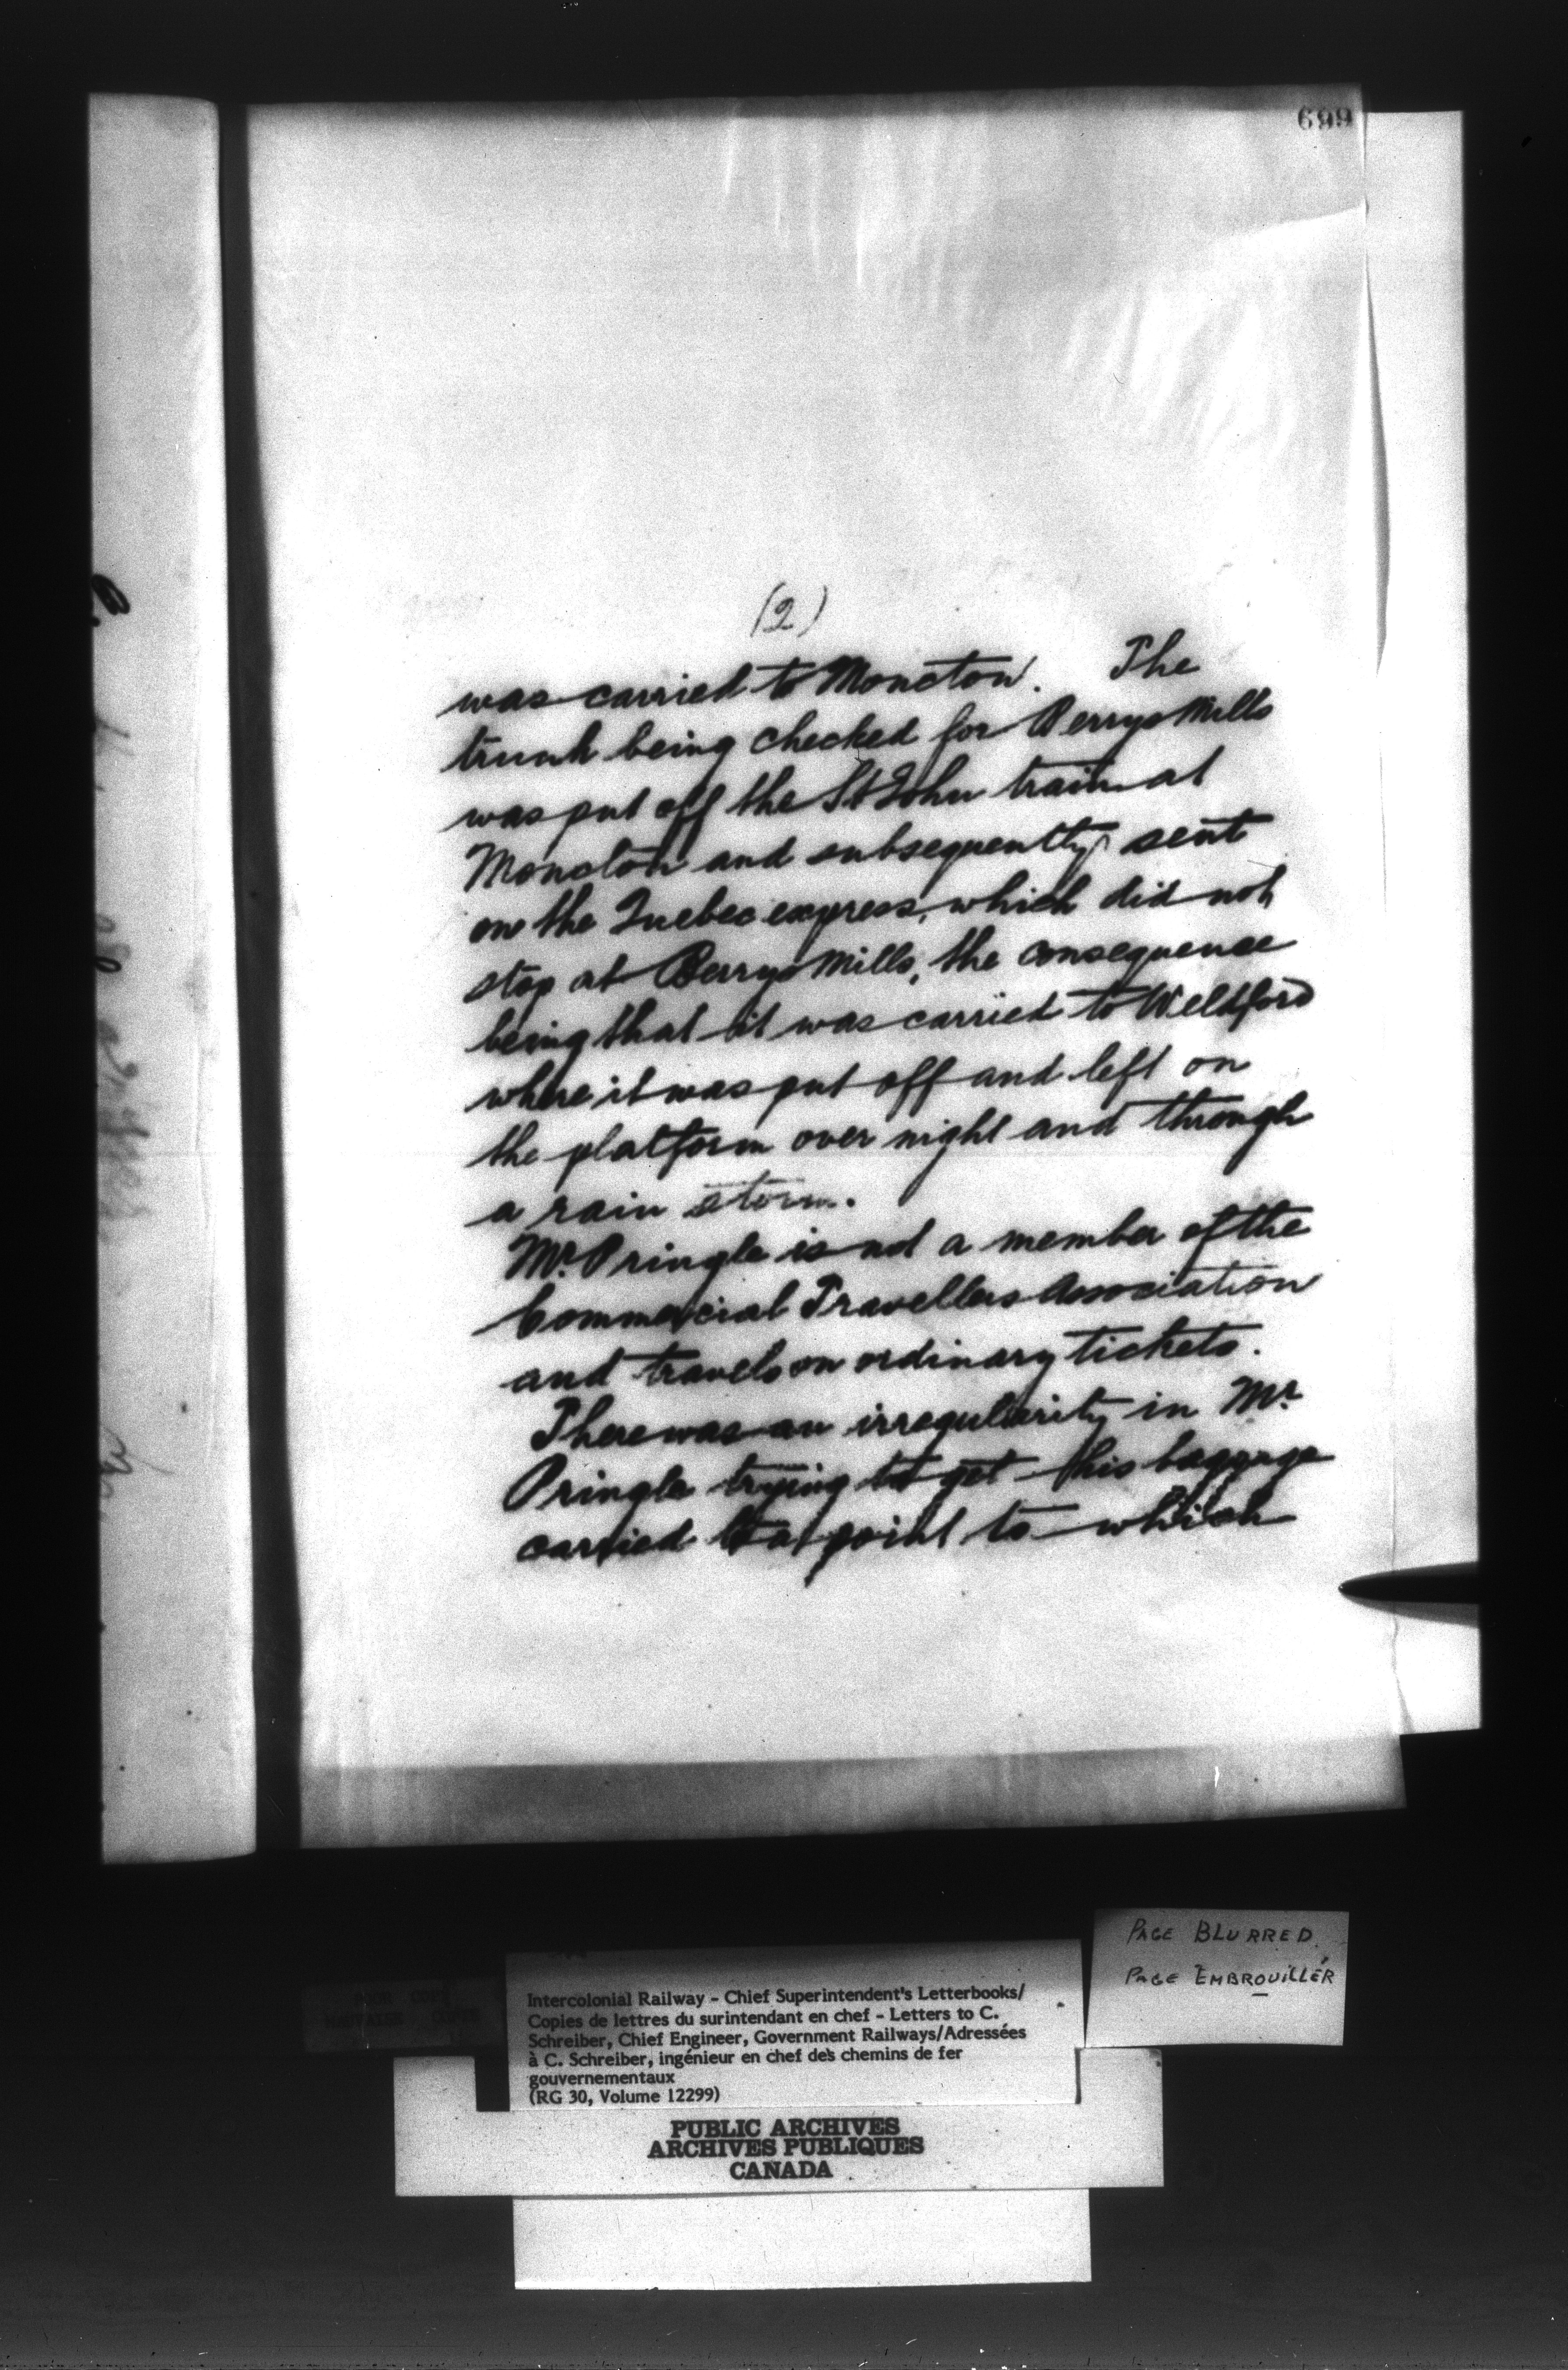 699
(2)
was carried to Moncton. The
trunk being checked for Berrys Mills
was put off the St John train at
Moncton and subsequently sent
on the Quebec express, which did not
stop at Berrys Mills, the consequence
being that it was carried to Weldford
where it was put off and left on
the platform over night and through
a rain storm.
Mr. Pringle is not a member of the
Commercial Travellers Association
and travels on ordinary tickets.
There was an irregularity in Mr
Pringle trying to get his baggage
carried to a point to which
PAGE BLURRED
PAGE EMBROUILLÉR
Intercolonial Railway - Chief Superintendent's Letterbooks/
Copies de lettres du surintendant en chef - Letters to C.
Schreiber, Chief Engineer, Government Railways/Adressées
à C. Schreiber, ingénieur en chef des chemins de fer
gouvernementaux
(RG 30, Volume 12299)
PUBLIC ARCHIVES
ARCHIVES PUBLIQUES
CANADA